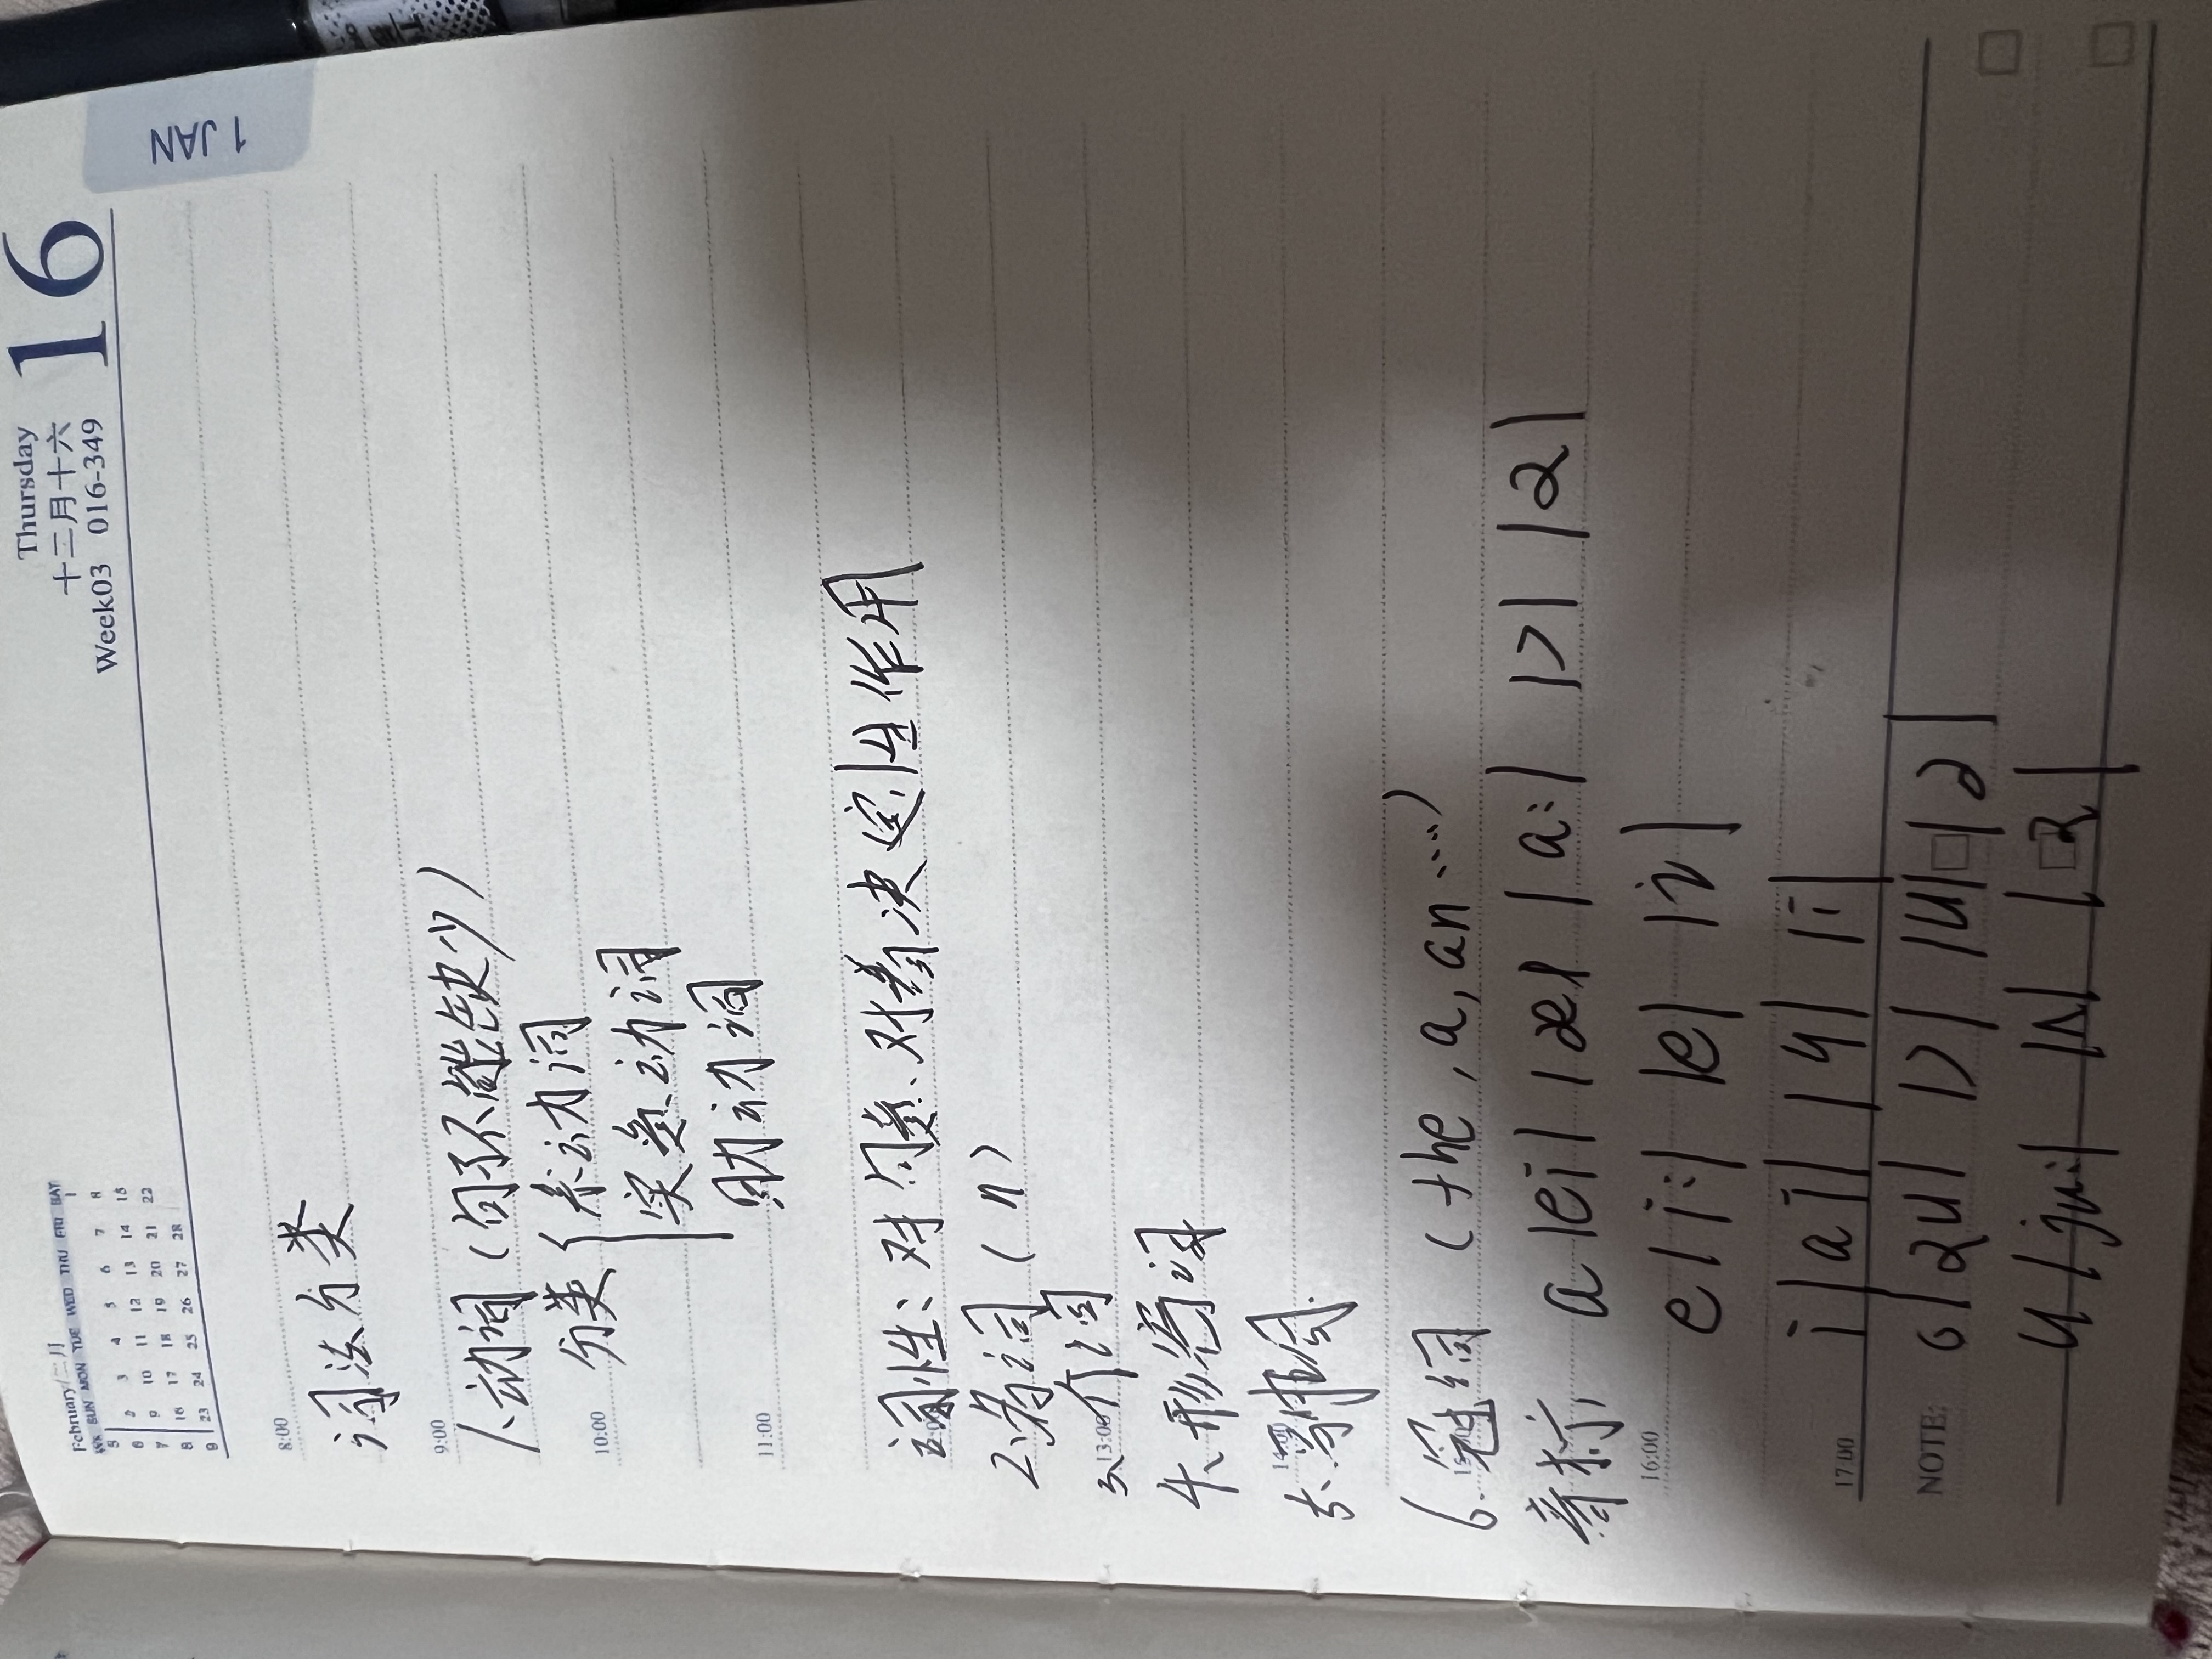 February/二月
WK SUN MON TUE WED THU FRI SAT
5 1
6 2 3 4 5 6 7 8
7 9 10 11 12 13 14 15
8 16 17 18 19 20 21 22
9 23 24 25 26 27 28
Thursday
十二月十六
Week03 016-349
16
1 JAN
8:00
词法分类
9:00
1、动词（句子不能缺少）
10:00
分类{系动词
实意动词
助动词
11:00
词性：对句意.对着决定性作用
2、名词（n）
13:00
3、介词
4、形容词
5、
6、冠词（the, a, an……）
音标: a |ei| |æ| |a:| |ɔ| |ə|
16:00
e |i:| |e| |i|
17:00
i |ai| |i|
NOTE:
o |əu| |ɔ| |u| |ə|
u |ju:| |ʌ|